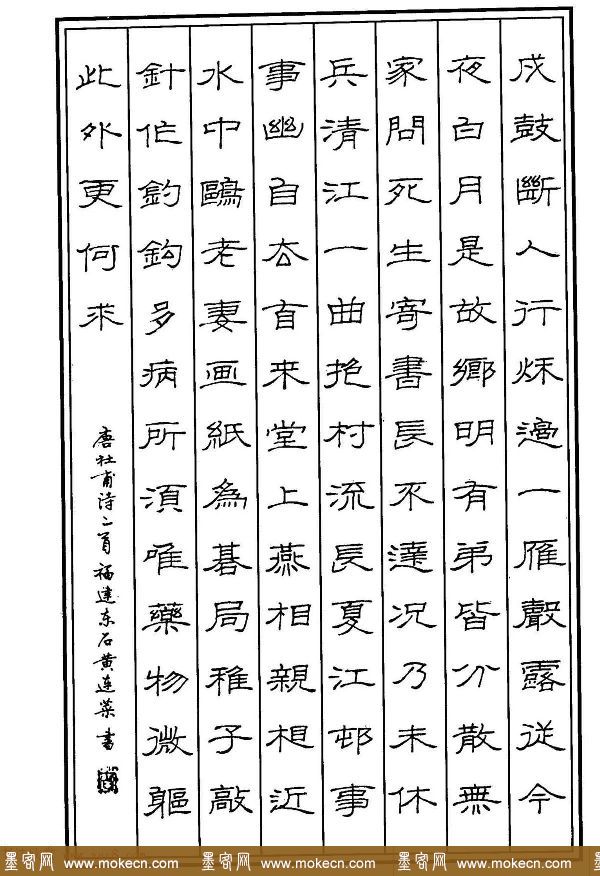 戍鼓斷人行秌邊一雁聲露從今
夜白月是故鄉明有弟皆分散無
家問死生寄書長不達况乃未休
兵清江一曲抱村流長夏江邨事
事幽自去自来堂上燕相親相近
水中鷗老妻画紙為碁局稚子敲
針作釣鈎多病所須唯藥物微軀
此外更何求
唐杜甫诗二首福建东石黄连书
墨客网 www.mokecn.com 墨客网 www.mokecn.com 墨客网 www.mokecn.com